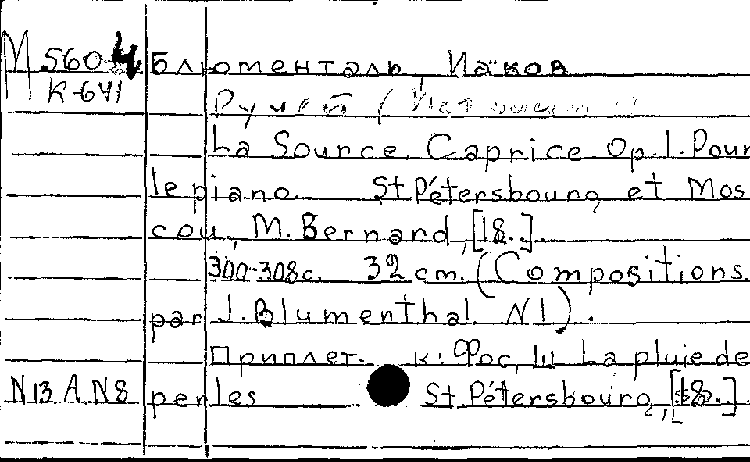 М 560 4 Блюменталь, Иаков
К-641
Ручей (Источник)
La Source, Caprice Op 1. Pour
le piano. St. Pétersbourg et Mos
cou, M. Bernard, [18..].
300-308 с. 32 cm. (Compositions
par J. Blumenthal. N1).
Приплет. к: Фос, Ш. La pluie de
N 13 A N8 perles St. Pétersbourg, [18..]